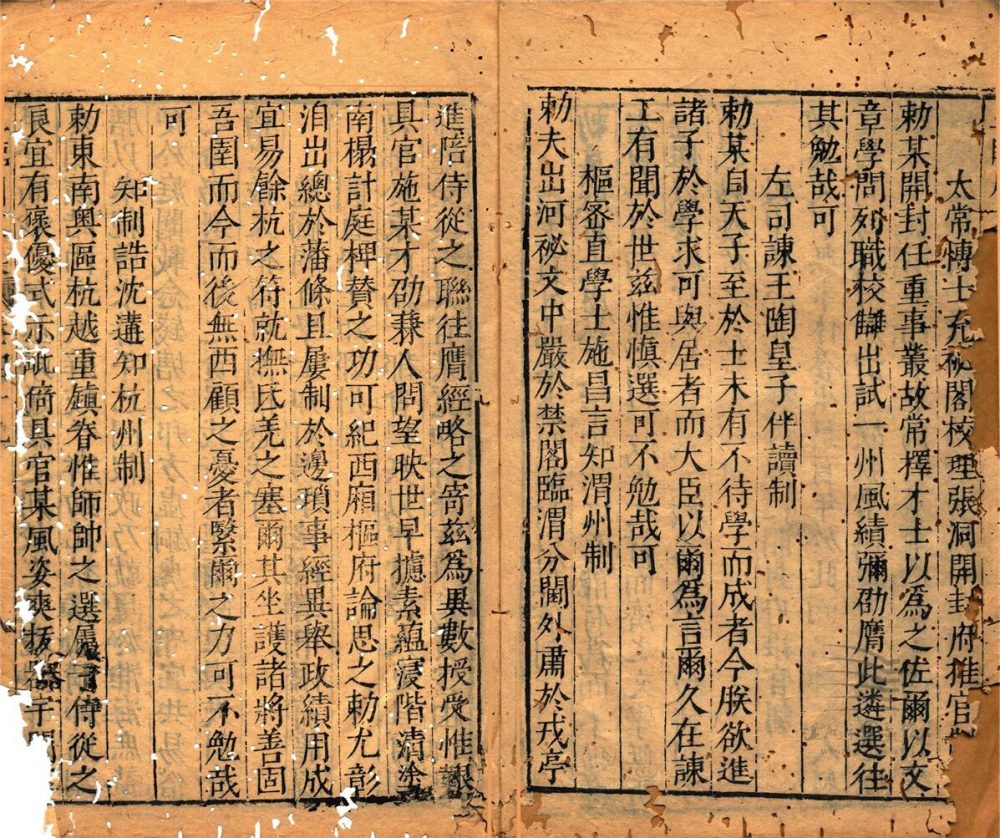 太常博士充祕閣校理張洞開封府推官
勑某開封任重事叢故常擇才士以為之佐爾以文
章學問列職校讎出試一州風績彌劭膺此遴選往
其勉哉可
左司諫王陶皇子伴讀制
勑某自天子至於士未有不待學而成者今朕欲進
諸子於學求可與居者而大臣以爾為言爾久在諫
工有聞於世茲惟慎選可不勉哉可
樞密直學士施昌言知渭州制
勑夫出河祕文中嚴於禁閣臨渭分閫外肅於戎亭
進陪侍從之聯往膺經略之寄茲為異數授受惟艱
具官施某才劭兼人問望映世早攄素蘊寖階清塗
南榻計庭椑賛之功可紀西廂樞府論思之勑尤彰
洎出總於藩條且屢制於邊瑣事經異舉政績用成
宜易餘杭之符就撫氐羌之塞爾其坐護諸將善固
吾圉而今而後無西顧之憂者繄爾之力可不勉哉
可
知制誥沈遘知杭州制
勑東南奧區杭越重鎮眷惟師帥之選屬侍從之
良宜有褒優式示毗倚具官某風姿爽拔器宇